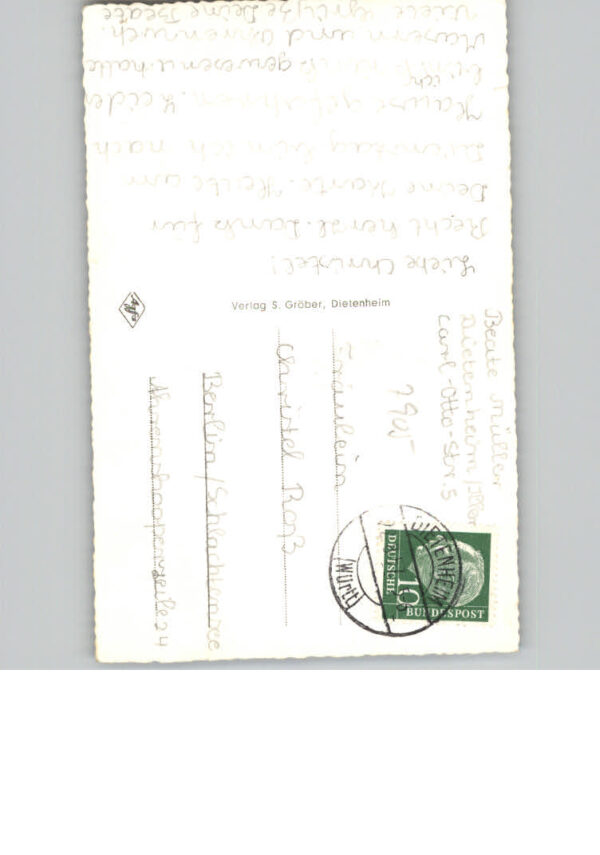 Liebe Christel!
Recht herzl. Dank für
Deine Karte. Habe am
Dienstag bin ich nach
Hause gefahren. Leider
bin ich gewesen u. hatte
Masern und
Viele Grüße Deine Beate
Verlag S. Gröber, Dietenheim
Agfa
Beate Müller
Dietenheim/Iller
Carl-Otto-Str. 5
Fräulein
Christel Roß
Berlin/Schlachtensee
24
DIETENHEIM
(Württ)
DEUTSCHE
BUNDESPOST
10